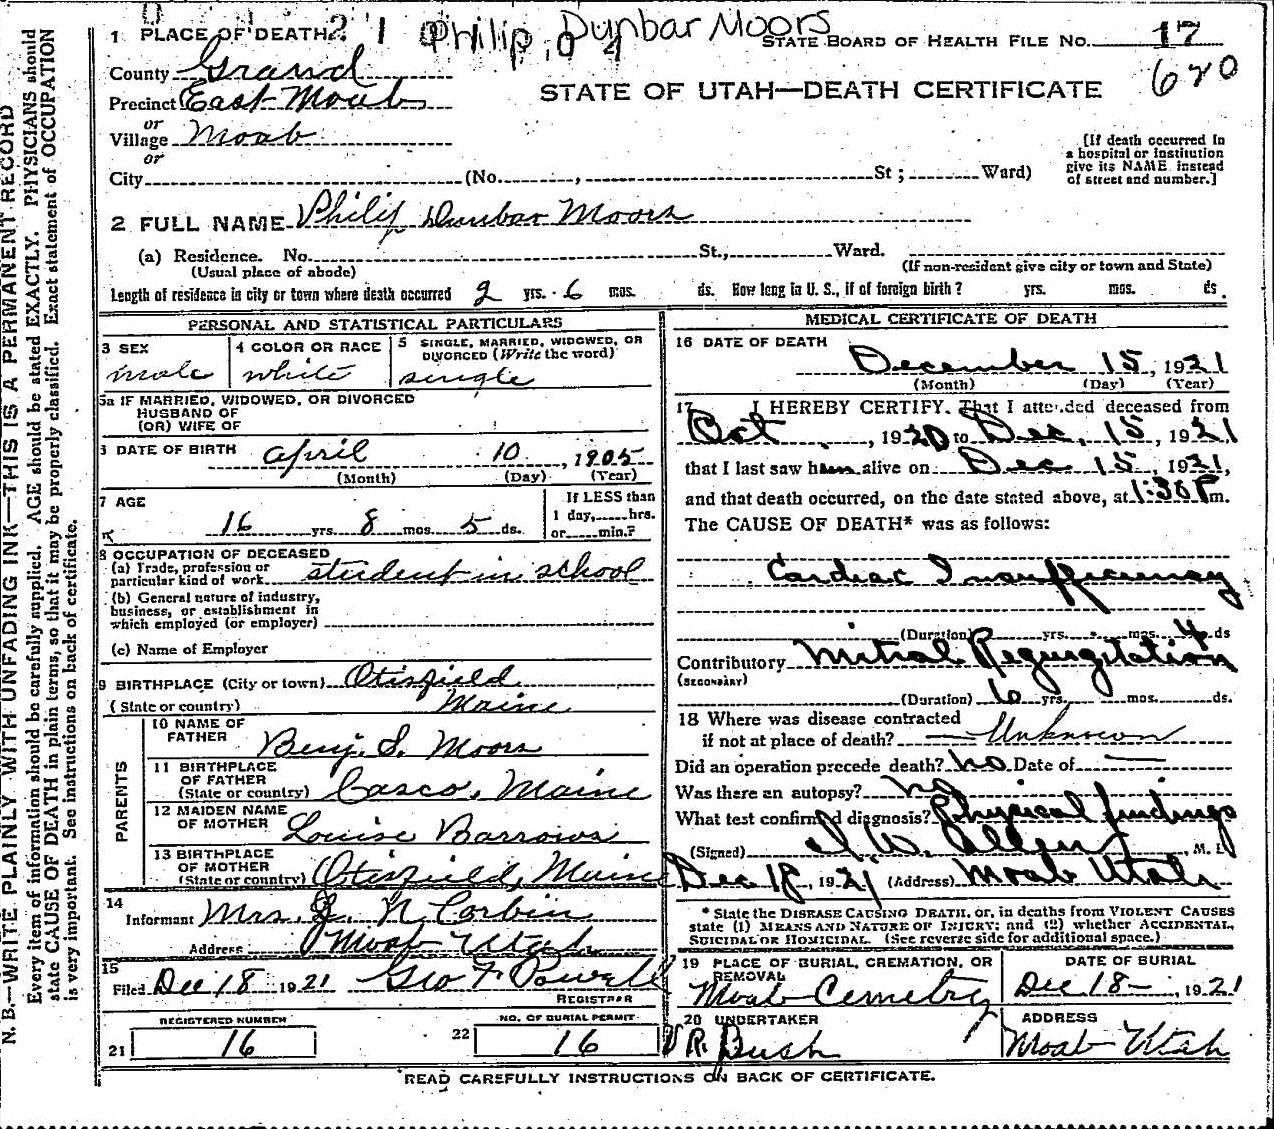 1 PLACE OF DEATH 21 Philip Dunbar Moors
STATE BOARD OF HEALTH FILE NO. 17
620
County Grand
Precinct East Moab
or
Village Moab
or
City (No. , St ; Ward)
STATE OF UTAH—DEATH CERTIFICATE
[If death occurred in
a hospital or institution
give its NAME instead
of street and number.]
2 FULL NAME Philip Dunbar Moors
(a) Residence. No. St., Ward.
(Usual place of abode) (If non-resident give city or town and State)
Length of residence in city or town where death occurred 2 yrs. 6 mos. ds. How long in U. S., if of foreign birth? yrs. mos. ds.
PERSONAL AND STATISTICAL PARTICULARS
3 SEX
male
4 COLOR OR RACE
white
5 SINGLE, MARRIED, WIDOWED, OR
DIVORCED (Write the word)
single
5a IF MARRIED, WIDOWED, OR DIVORCED
HUSBAND OF
(OR) WIFE OF
6 DATE OF BIRTH April 10, 1905
(Month) (Day) (Year)
7 AGE
16 yrs. 8 mos. 5 ds.
If LESS than
1 day, hrs.
or min.?
8 OCCUPATION OF DECEASED
(a) Trade, profession or
particular kind of work student in school
(b) General nature of industry,
business, or establishment in
which employed (or employer)
(c) Name of Employer
9 BIRTHPLACE (City or town) Otisfield
(State or country) Maine
PARENTS
10 NAME OF
FATHER Benj. S. Moors
11 BIRTHPLACE
OF FATHER
(State or country) Casco, Maine
12 MAIDEN NAME
OF MOTHER Louise Barrows
13 BIRTHPLACE
OF MOTHER
(State or country) Otisfield, Maine
14
Informant Mrs. J. N. Corbin
Address Moab Utah
15
Filed Dec 18 1921 Geo F Powell
REGISTRAR
REGISTERED NUMBER
21 16
NO. OF BURIAL PERMIT
22 16
MEDICAL CERTIFICATE OF DEATH
16 DATE OF DEATH
December 15, 1921
(Month) (Day) (Year)
17 I HEREBY CERTIFY. That I attended deceased from
Oct , 1920 to Dec, 15, 1921
that I last saw him alive on Dec 15, 1921,
and that death occurred, on the date stated above, at 1:30 P m.
The CAUSE OF DEATH* was as follows:
Cardiac Insufficiency
(Duration) yrs. mos. 4 ds
Contributory Mitral Regurgitation
(SECONDARY)
(Duration) 6 yrs. mos. ds.
18 Where was disease contracted
if not at place of death? Unknown
Did an operation precede death? no Date of —
Was there an autopsy? no
What test confirmed diagnosis? Physical findings
(Signed) I. W. Allen, M. D.
Dec 18, 1921 (Address) Moab Utah
* State the DISEASE CAUSING DEATH, or, in deaths from VIOLENT CAUSES
state (1) MEANS AND NATURE OF INJURY; and (2) whether ACCIDENTAL,
SUICIDAL OR HOMICIDAL. (See reverse side for additional space.)
19 PLACE OF BURIAL, CREMATION, OR
REMOVAL
Moab Cemetry
DATE OF BURIAL
Dec 18 —, 1921
20 UNDERTAKER
V R. Bush
ADDRESS
Moab Utah
READ CAREFULLY INSTRUCTIONS ON BACK OF CERTIFICATE.
N. B.—WRITE PLAINLY WITH UNFADING INK—THIS IS A PERMANENT RECORD
Every item of information should be carefully supplied. AGE should be stated EXACTLY. PHYSICIANS should
state CAUSE OF DEATH in plain terms, so that it may be properly classified. Exact statement of OCCUPATION
is very important. See instructions on back of certificate.